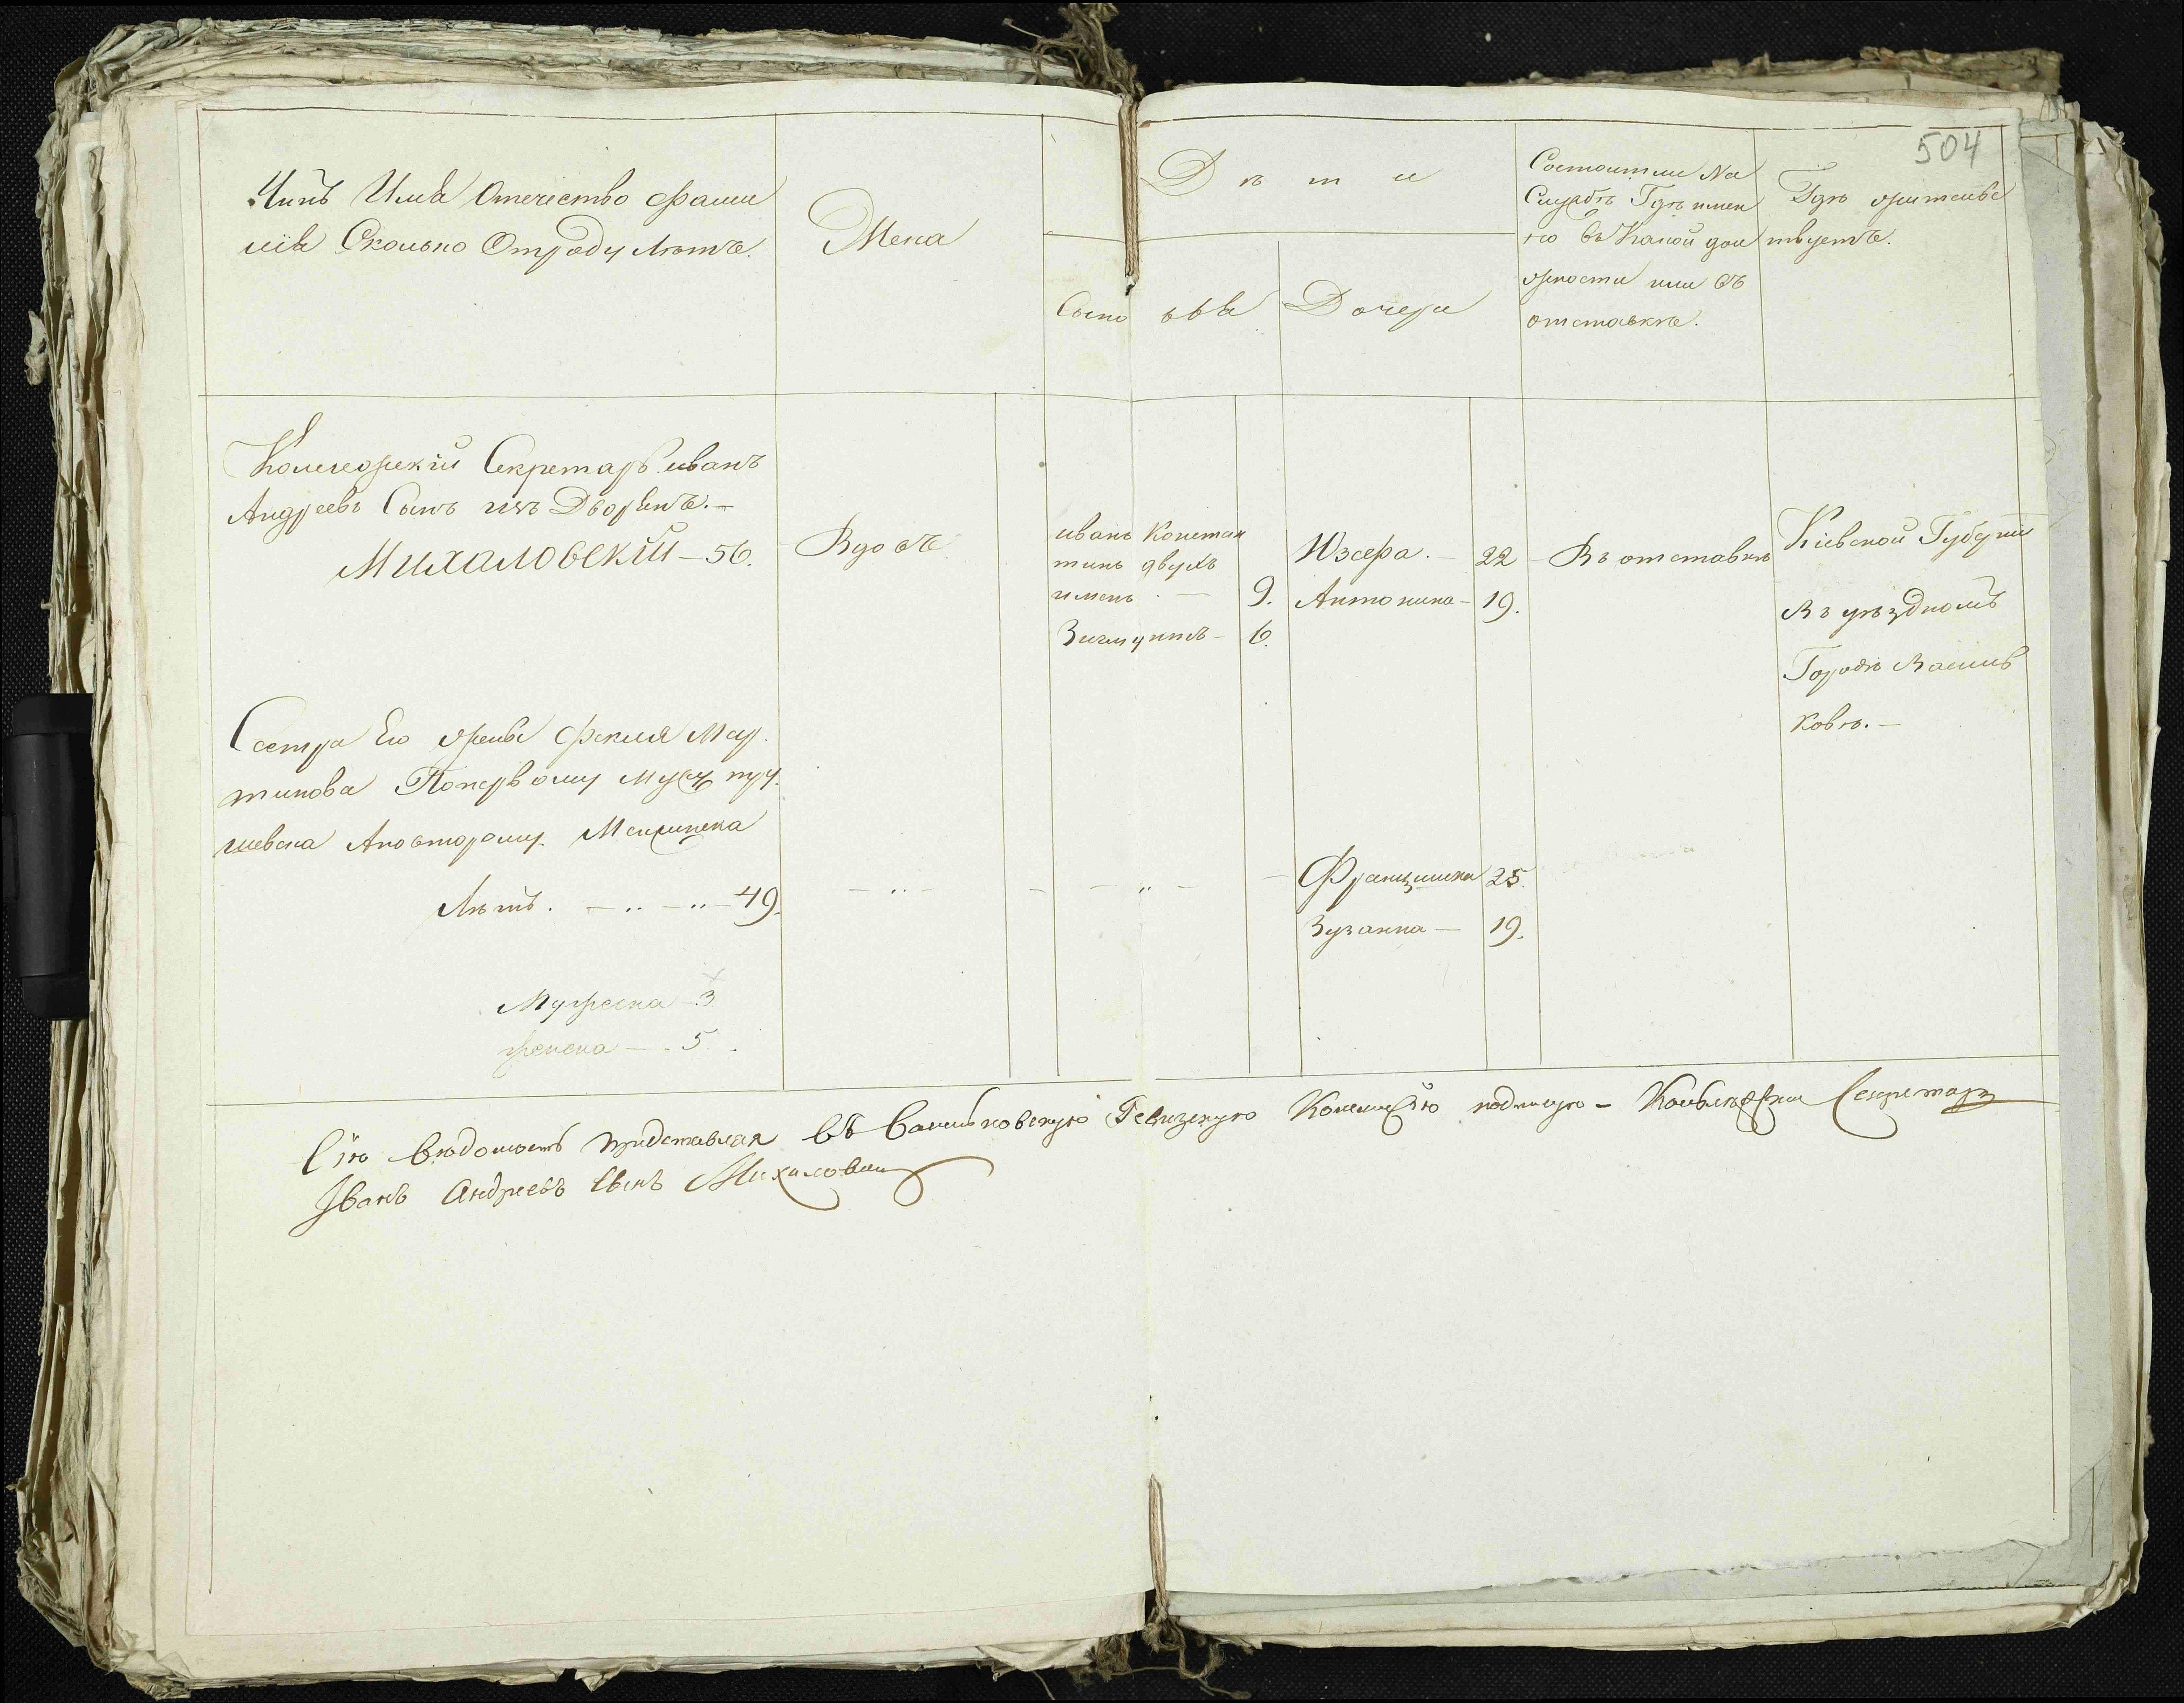 504
Чинъ Имя Отечество фами
лія Сколько Отроду лѣтъ.
Жена
Дѣти
Сыно вья
Дочери
Состоитли На
Службѣ Гдѣ имен
но въ Какой дол
жности или въ
отставкѣ.
Гдѣ жительс
твуетъ.
Колегскій Секретарь иванъ
Андреевъ Сынъ изъ Дворянъ.—
Михаловскій — 56.
Вдовъ
иванъ Констан
тинъ двухъ
именъ — 9.
Зигмунтъ — 6.
Юзефа. — 22
Антонина — 19.
Въ отставкѣ
Кіевской Губерніи
Въ уѣздномъ
Городѣ Василь
ковѣ.—
Сестра Его жены Фекля Мар
тинова Поперьвому мужу
Апоовторому
Лѣтъ. — 49.
Францишка 25.
Зузанна — 19.
Мужеска — 3
женска — 5.
Сію вѣдомость придставляя въ Васильковскую Ревизскую Комисію подписую — Секретарь
Іванъ Андреевъ Сынъ Михаловски